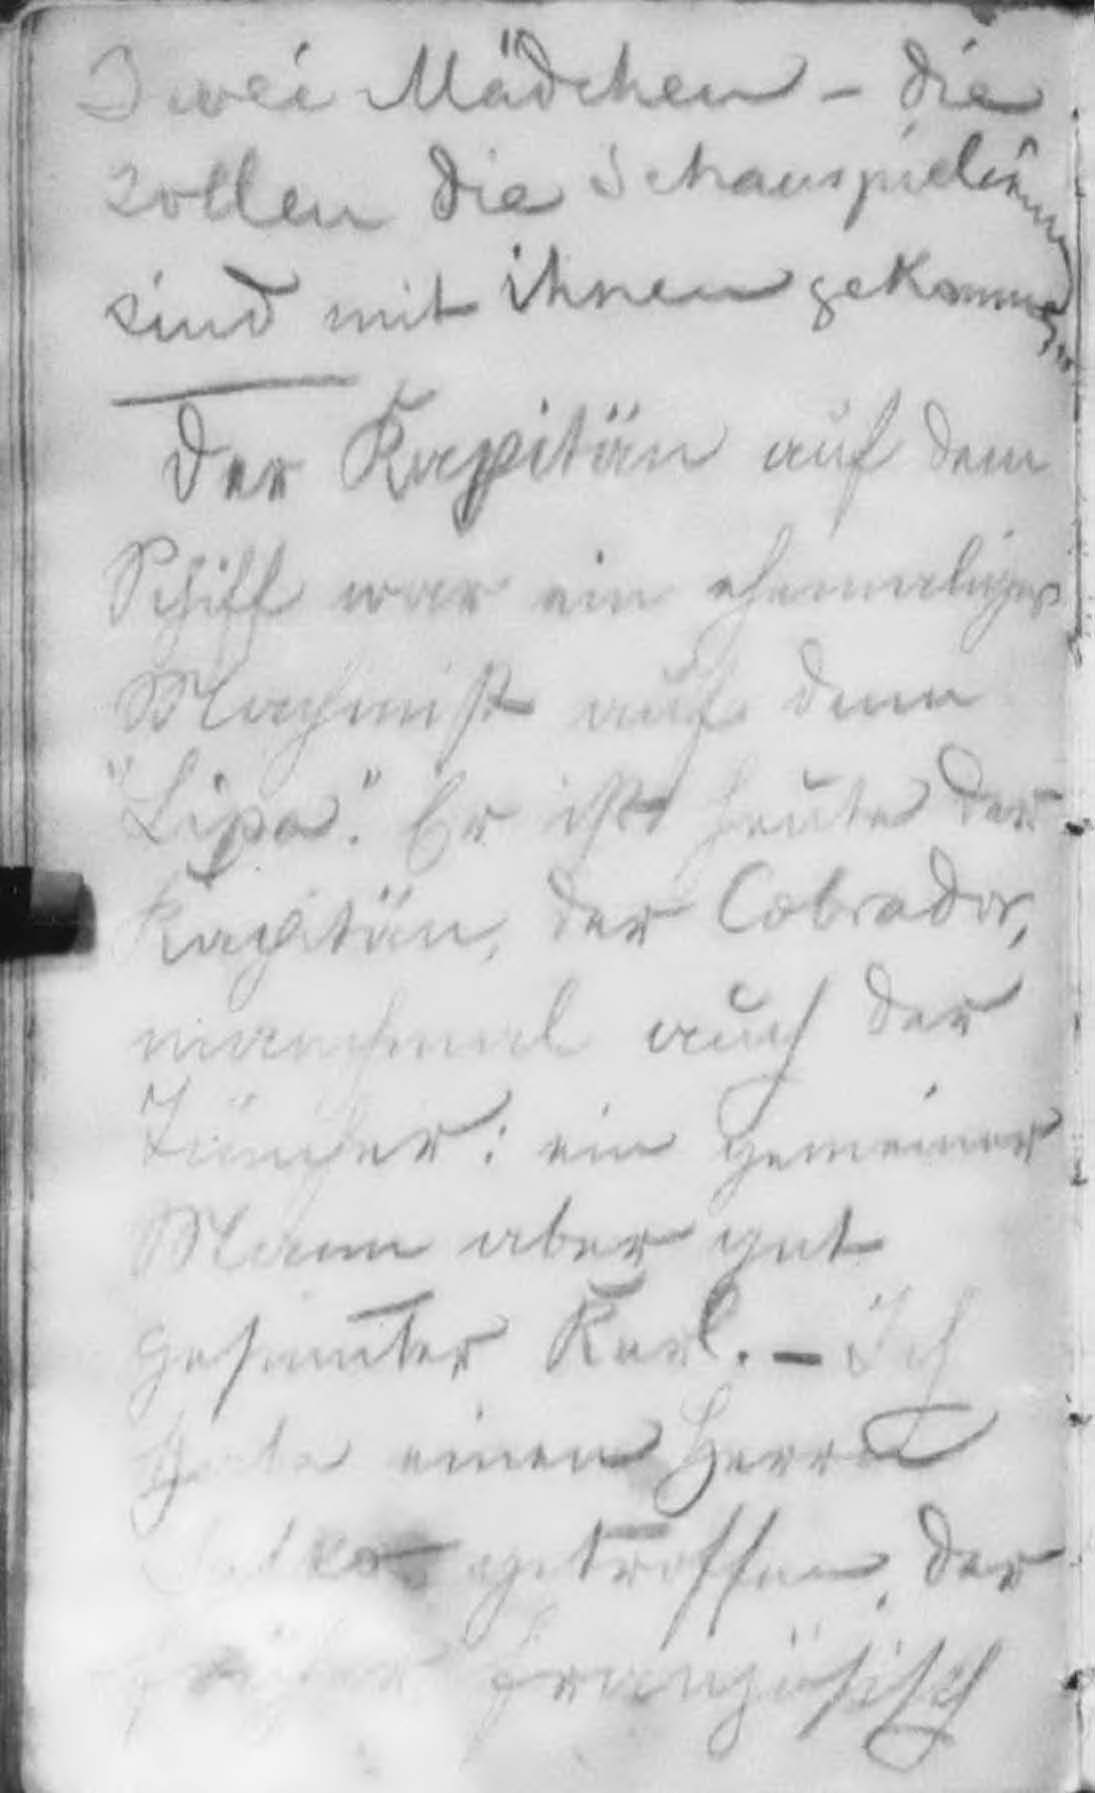 Zwei Mädchen – die
sollen die Schauspielerinnen
sind mit ihnen gekommen
Der Kapitän auf dem
Schiff war ein ehemaliger
Machinist auf dem
"Lipa". Er ist heute der
Kapitän, der Cobrador,
manchmal auch der
: ein gemeiner
Mann aber gut
gesinnter Kerl. – Ich
habe einen Herrn
getroffen, der
früher französisch